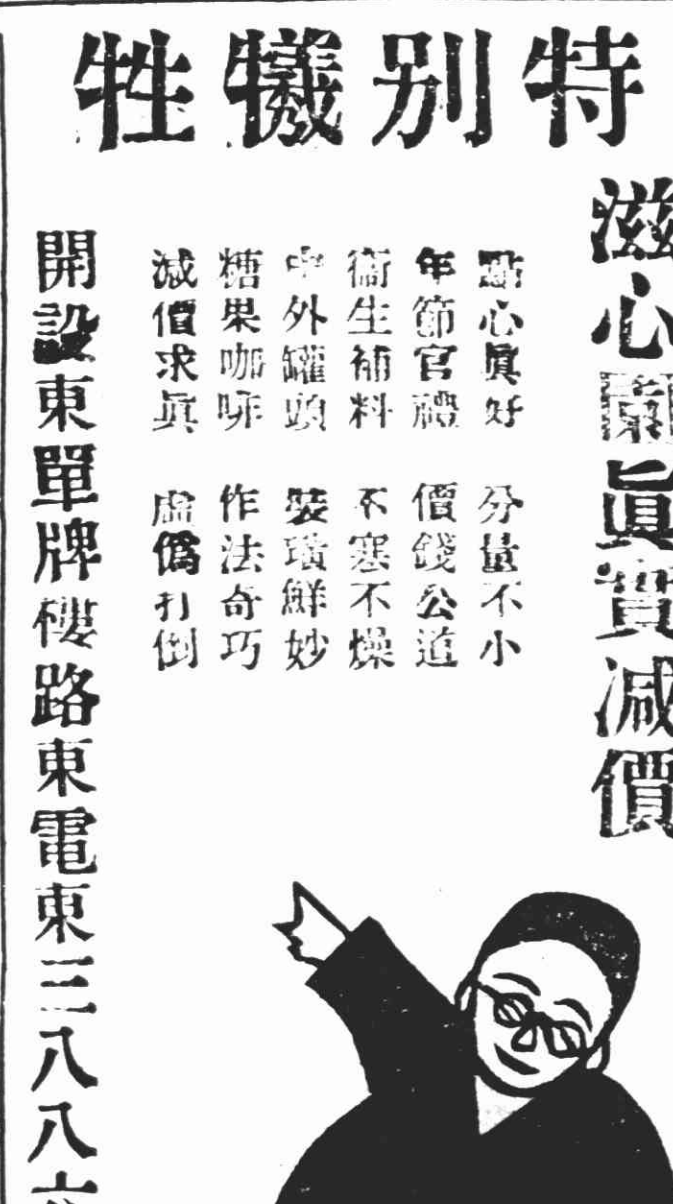 特別犧牲
滋心園眞實減價
點心眞好　分量不小
年節官禮　價錢公道
衞生補料　不寒不燥
中外罐頭　裝璜鮮妙
糖果咖啡　作法奇巧
減價求眞　虛僞打倒
開設東單牌樓路東電東三八八